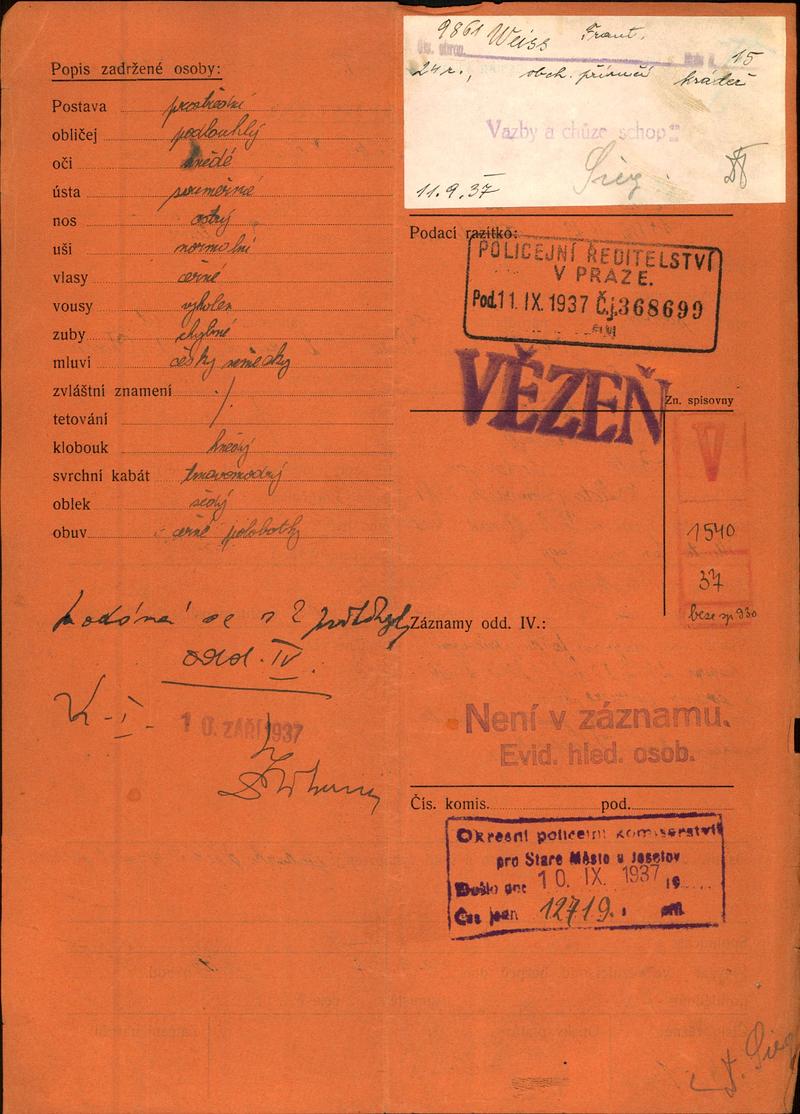 Popis zadržené osoby:
Postava prostřední
obličej podlouhlý
oči hnědé
ústa souměrné
nos ostrý
uši normalní
vlasy černé
vousy vyholen
zuby chybné
mluví česky německy
zvláštní znamení ./.
tetování
klobouk hnědý
svrchní kabát tmavomodrý
oblek šedý
obuv černé polobotky
se s 2
odd. IV.
K-I.
10. ZÁŘÍ 1937
9861 Weiss Frant.
15
24 r., obch. příručí krádež
Vazby a chůze schop
11.9.37
Podací razítko:
POLICEJNÍ ŘEDITELSTVÍ
V PRAZE.
Pod. 11. IX. 1937 Č.j. 368699
VĚZEŇ
Zn. spisovny
V
1540
37
Záznamy odd. IV.:
Není v záznamu.
Evid. hled. osob.
Čís. komis. pod.
Okresní policejní komisařství
pro Staré Město a Josefov
Došlo dne 10. IX. 1937 19
Čís. jedn. 12719.